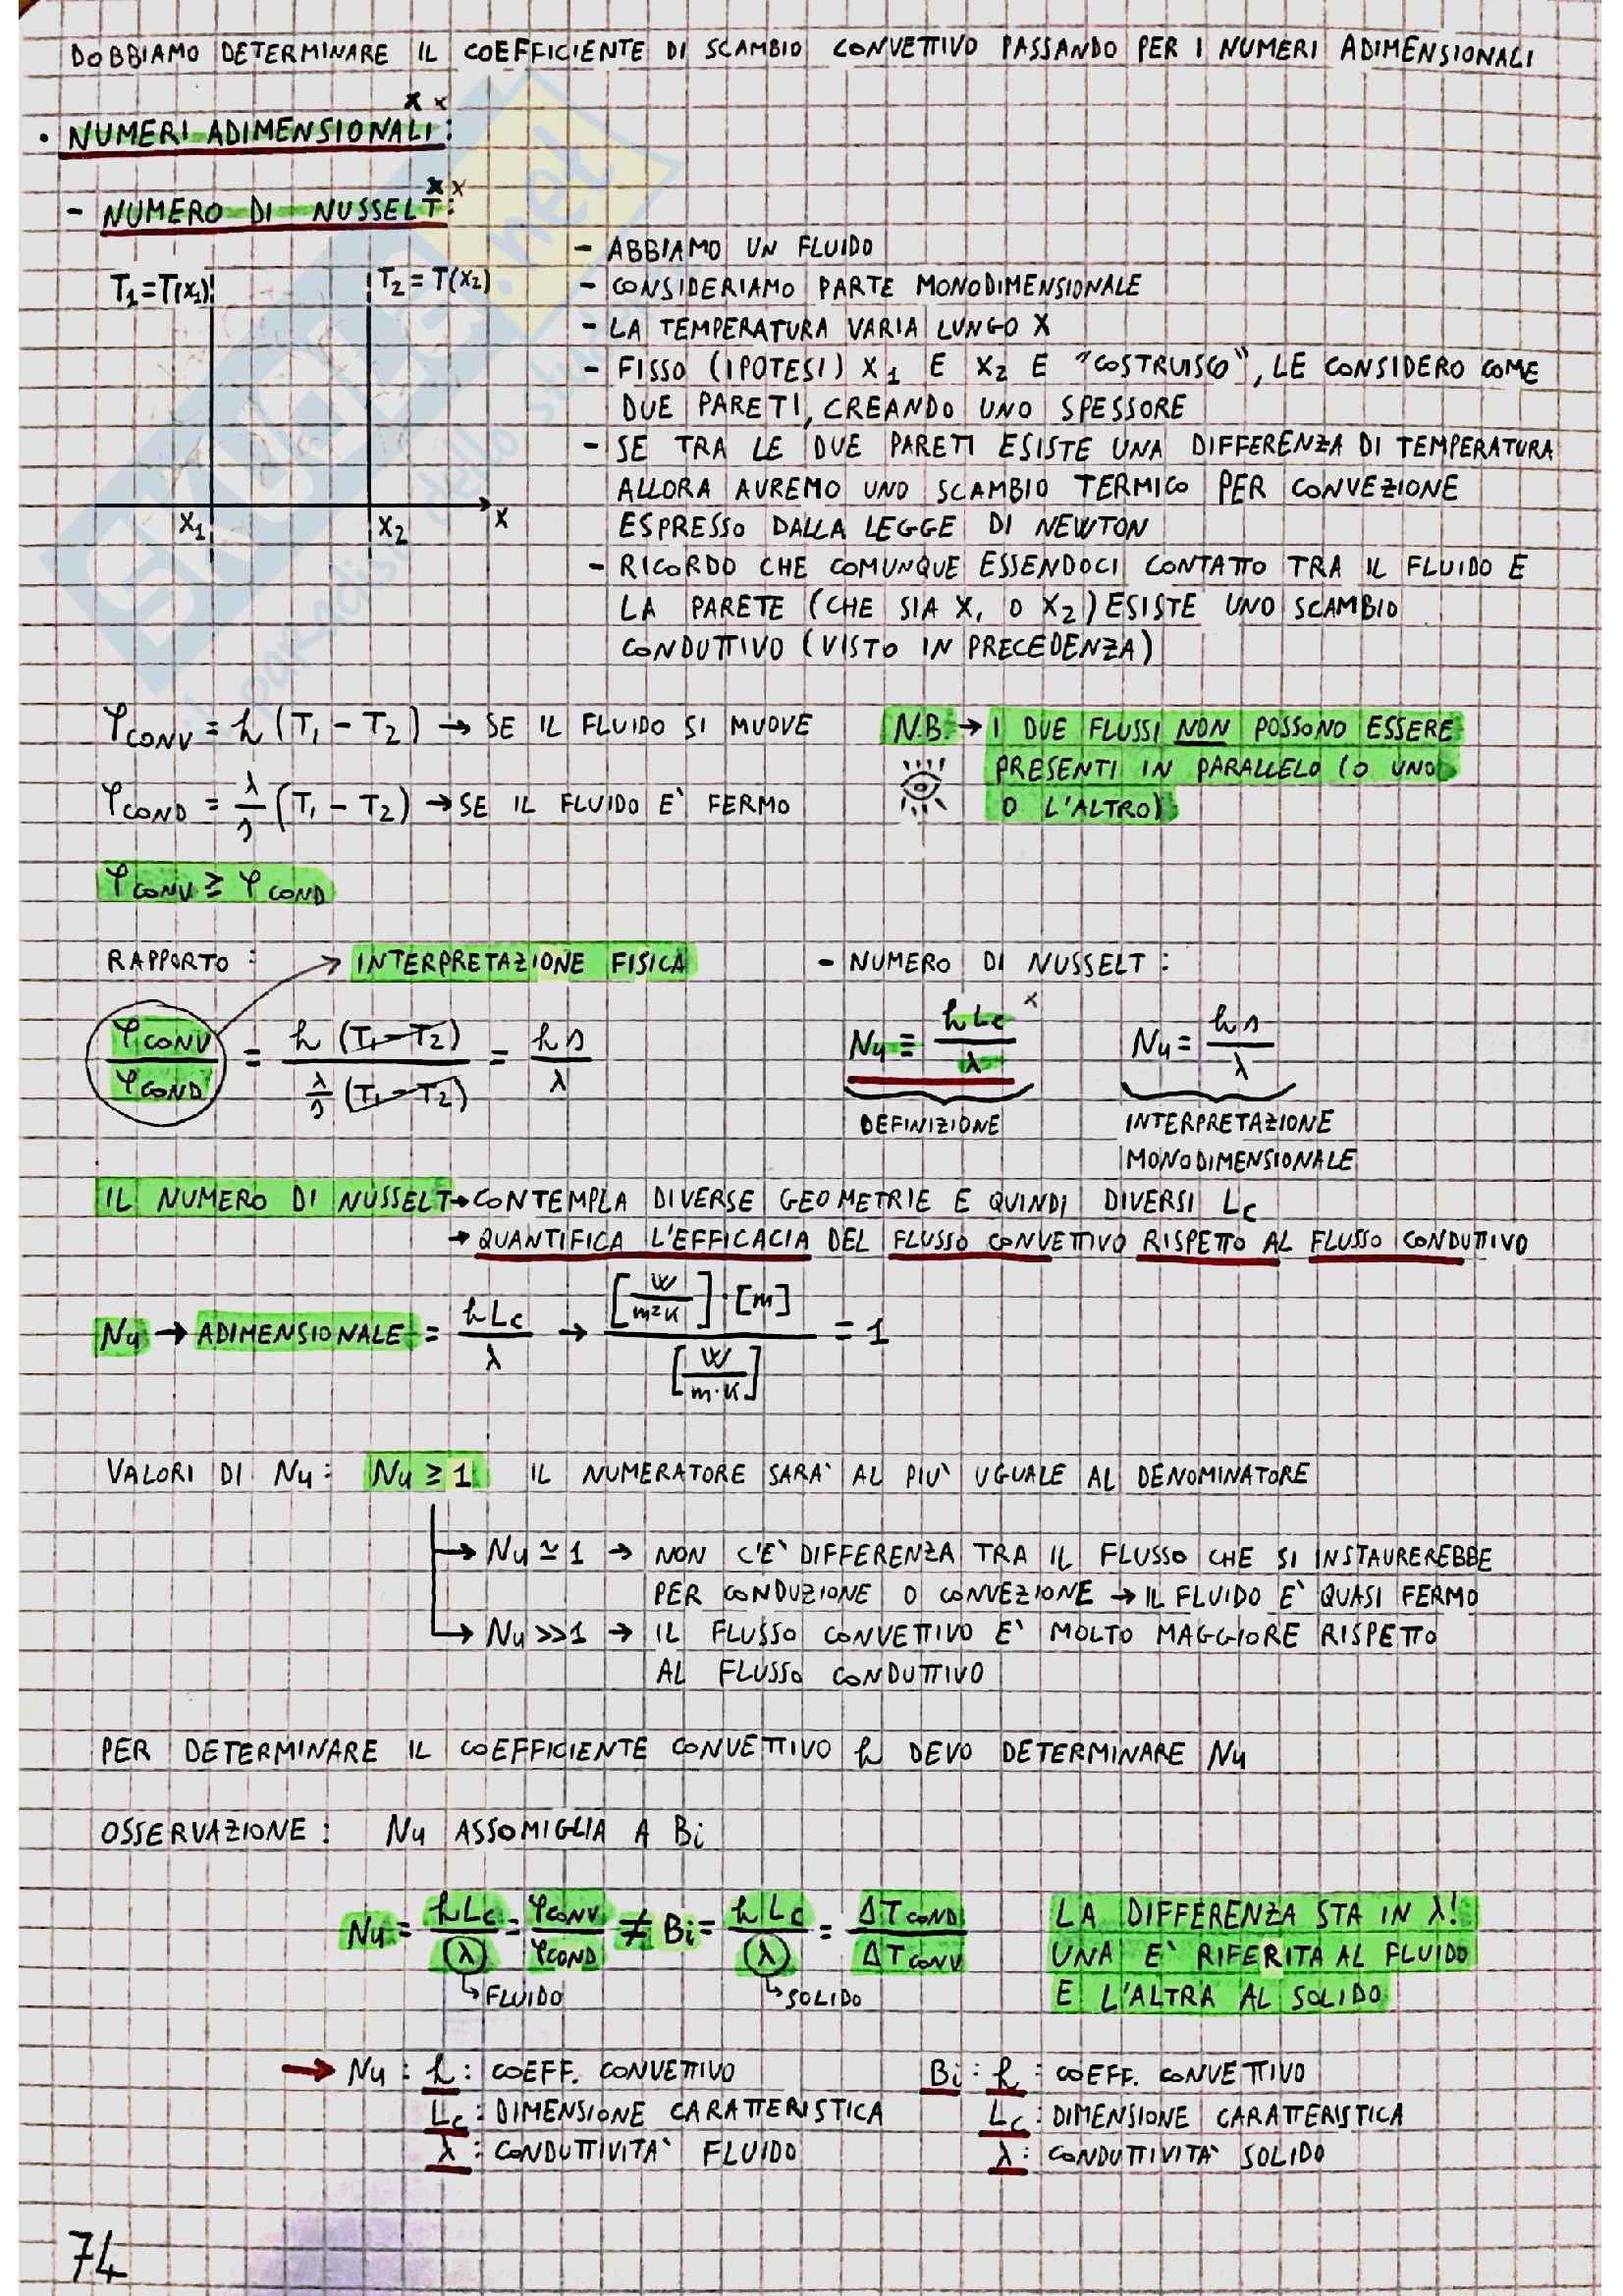 DOBBIAMO DETERMINARE IL COEFFICIENTE DI SCAMBIO CONVETTIVO PASSANDO PER I NUMERI ADIMENSIONALI
• NUMERI ADIMENSIONALI:
- NUMERO DI NUSSELT:
T₁ = T(x₁)
T₂ = T(x₂)
x₁ x₂ x
- ABBIAMO UN FLUIDO
- CONSIDERIAMO PARTE MONODIMENSIONALE
- LA TEMPERATURA VARIA LUNGO X
- FISSO (IPOTESI) X₁ E X₂ E "COSTRUISCO", LE CONSIDERO COME
DUE PARETI, CREANDO UNO SPESSORE
- SE TRA LE DUE PARETI ESISTE UNA DIFFERENZA DI TEMPERATURA
ALLORA AVREMO UNO SCAMBIO TERMICO PER CONVEZIONE
ESPRESSO DALLA LEGGE DI NEWTON
- RICORDO CHE COMUNQUE ESSENDOCI CONTATTO TRA IL FLUIDO E
LA PARETE (CHE SIA X₁ O X₂) ESISTE UNO SCAMBIO
CONDUTTIVO (VISTO IN PRECEDENZA)
φCONV = h (T₁ - T₂) → SE IL FLUIDO SI MUOVE
φCOND = λ/s (T₁ - T₂) → SE IL FLUIDO E' FERMO
N.B. → I DUE FLUSSI NON POSSONO ESSERE
PRESENTI IN PARALLELO (O UNO
O L'ALTRO)
φCONV ≥ φCOND
RAPPORTO: → INTERPRETAZIONE FISICA
φCONV/φCOND = h (T₁-T₂) / λ/s (T₁-T₂) = hs/λ
- NUMERO DI NUSSELT:
Nu ≡ hLc/λ
DEFINIZIONE
Nu = hs/λ
INTERPRETAZIONE
MONODIMENSIONALE
IL NUMERO DI NUSSELT → CONTEMPLA DIVERSE GEOMETRIE E QUINDI DIVERSI Lc
→ QUANTIFICA L'EFFICACIA DEL FLUSSO CONVETTIVO RISPETTO AL FLUSSO CONDUTTIVO
Nu → ADIMENSIONALE = hLc/λ → [W/m²K]·[m] / [W/m·K] = 1
VALORI DI Nu: Nu ≥ 1 IL NUMERATORE SARA' AL PIU' UGUALE AL DENOMINATORE
→ Nu ≃ 1 → NON C'E' DIFFERENZA TRA IL FLUSSO CHE SI INSTAUREREBBE
PER CONDUZIONE O CONVEZIONE → IL FLUIDO E' QUASI FERMO
→ Nu >> 1 → IL FLUSSO CONVETTIVO E' MOLTO MAGGIORE RISPETTO
AL FLUSSO CONDUTTIVO
PER DETERMINARE IL COEFFICIENTE CONVETTIVO h DEVO DETERMINARE Nu
OSSERVAZIONE: Nu ASSOMIGLIA A Bi
Nu = hLc/λ = φCONV/φCOND ≠ Bi = hLc/λ = ΔTCOND/ΔTCONV
↳ FLUIDO
↳ SOLIDO
LA DIFFERENZA STA IN λ!
UNA E' RIFERITA AL FLUIDO
E L'ALTRA AL SOLIDO
→ Nu: h: COEFF. CONVETTIVO
Lc: DIMENSIONE CARATTERISTICA
λ: CONDUTTIVITA' FLUIDO
Bi: h: COEFF. CONVETTIVO
Lc: DIMENSIONE CARATTERISTICA
λ: CONDUTTIVITA' SOLIDO
74